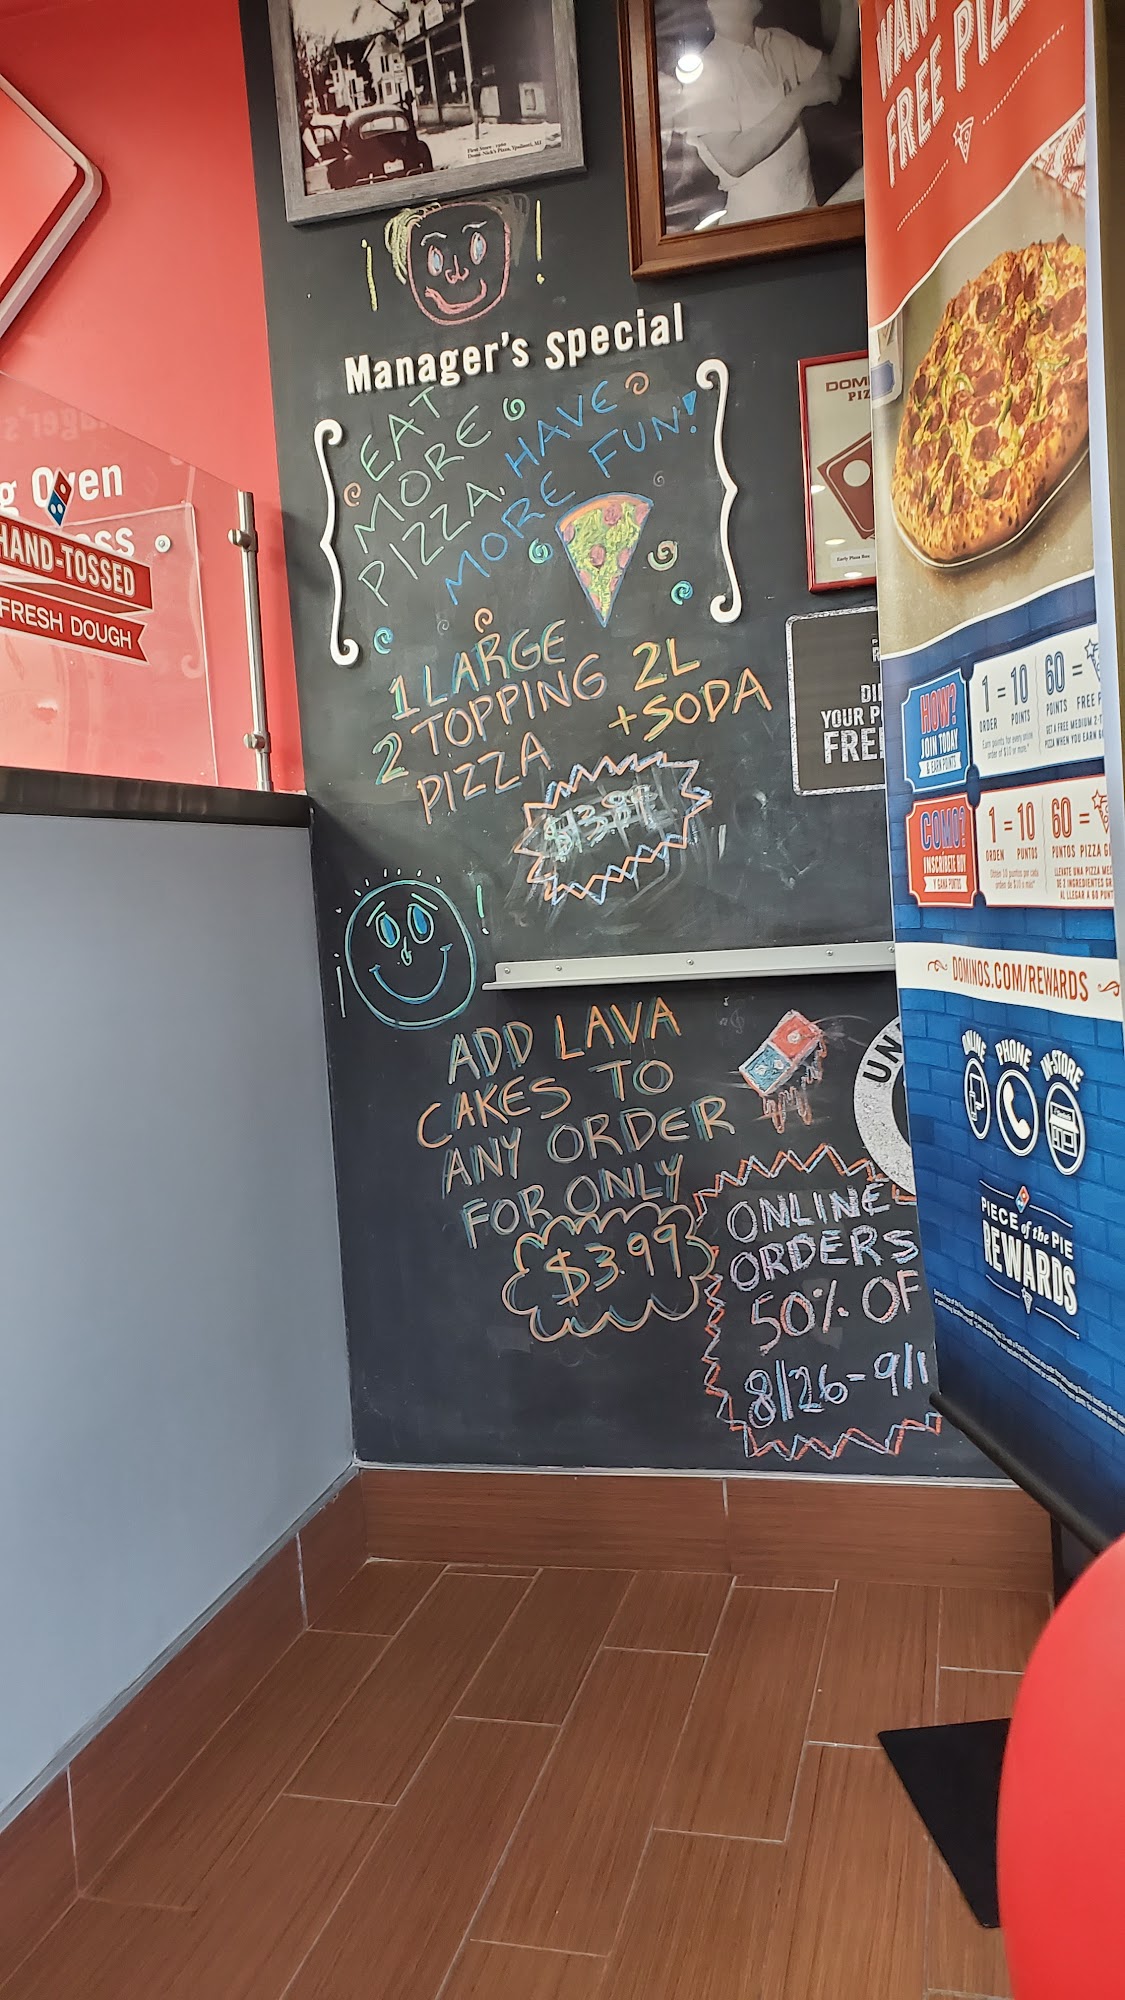 First Store - 1960
Domi-Nick's Pizza, Ypsilanti, MI
Manager's Special
EAT
MORE
PIZZA, HAVE
MORE FUN!
1 LARGE
2 TOPPING
PIZZA
2L
+SODA
ADD LAVA
CAKES TO
ANY ORDER
FOR ONLY
$3.99
ONLINE
ORDERS
50% OF
8/26-9/1
g Oven
HAND-TOSSED
FRESH DOUGH
Early Pizza Box
YOUR P
FREE
UN
FREE PIZZ
HOW?
JOIN TODAY
& EARN POINTS
1 = 10
ORDER POINTS
Earn points for every online
order of $10 or more.*
60 =
POINTS FREE P
GET A FREE MEDIUM 2-T
PIZZA WHEN YOU EARN 6
COMO?
INSCRÍBETE HOY
Y GANA PUNTOS
1 = 10
ORDEN PUNTOS
Obtén 10 puntos por cada
orden de $10 o más*
60 =
PUNTOS PIZZA G
LLÉVATE UNA PIZZA ME
DE 2 INGREDIENTES G
AL LLEGAR A 60 PUNT
DOMINOS.COM/REWARDS
ONLINE
PHONE
IN-STORE
PIECE of the PIE
REWARDS